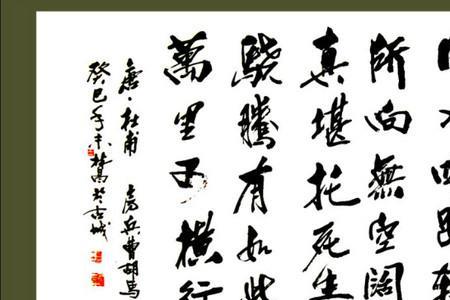 所向無空闊
真堪托死生
驍騰有如此
萬里可橫行
唐·杜甫 房兵曹胡馬
癸巳年 於古城